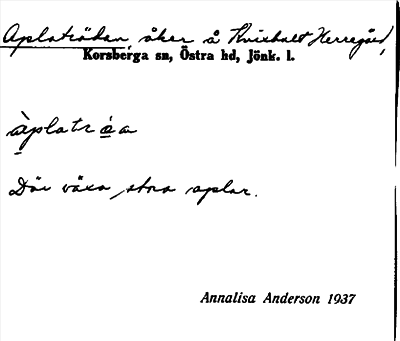 Aplaträdan åker å Kvixhult Herregård,
Korsberga sn, Östra hd, Jönk. l.
àplatráa
Där växa stora aplar.
Annalisa Anderson 1937